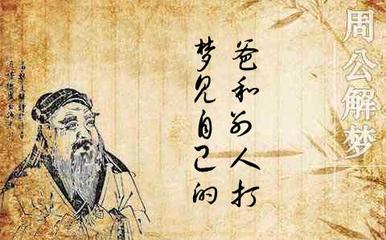 周公解梦
梦见自己的
爸和别人打